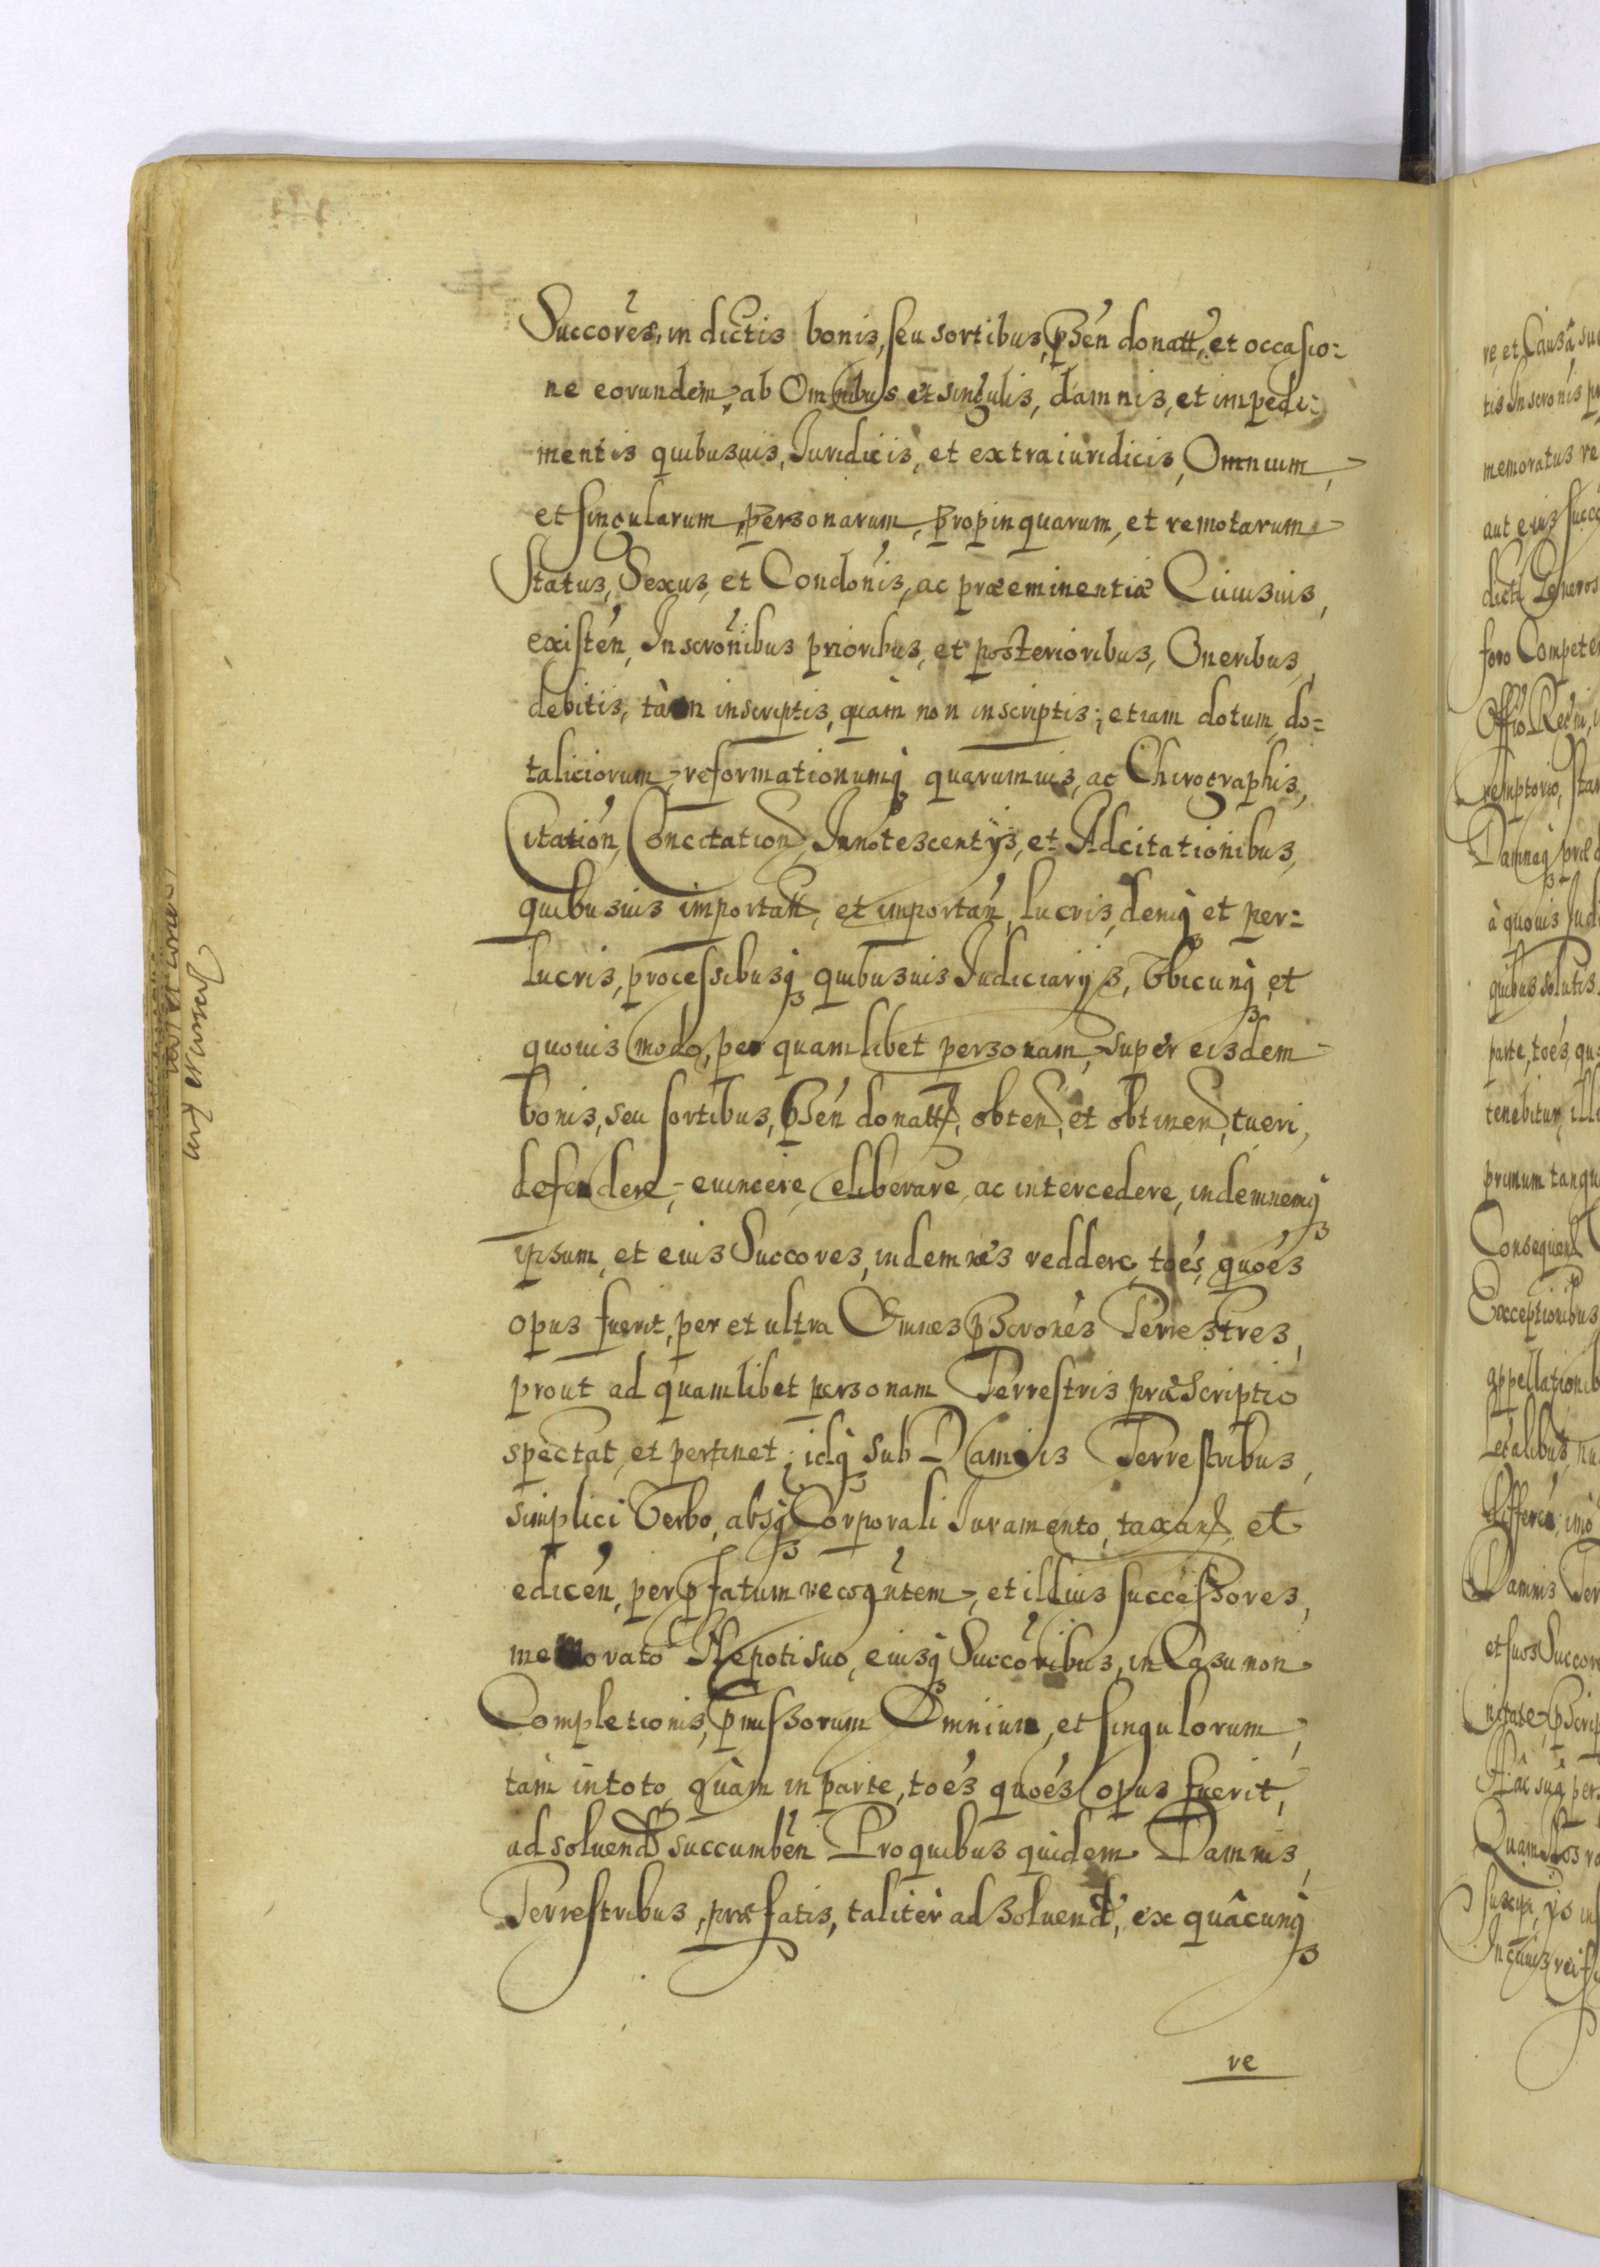 Succores, in dictis bonis, seu sortibus, pñtn donatt, et occasio=
ne eorundem, ab Omnibus et singulis, damnis, et impedi=
mentis quibusuis, Juridicis, et extraiuridicis, Omnium,
et singularum, personarum, propinquarum, et remotarum
Status, Sexus, et Condonis, ac præeminentiæ Cuiusuis,
existen, Inscronibus prioribus, et posterioribus, Oneribus,
debitis, tàm inscriptis, quàm non inscriptis; etiam dotum, do=
taliciorum, reformationumq quarumuis, ac Chirographis,
Citation, Concitation, Innotescentijs, et Adcitationibus,
quibusuis importatt, et importan, lucris, deniq et per=
lucris, processibusq quibusuis Judiciarijs, Vbicunq, et
quouis modo, per quamlibet personam, super eisdem
bonis, seu sortibus, psen donatt, obten, et obtinen, tueri,
defendere, euincere, eliberare, ac intercedere, indemnemq
ipsum, et eius Succores, indemnes reddere, toés, quoés
opus fuerit, per et ultra Omnes pscronés Terrestres,
prout ad quamlibet personam Terrestris præscriptio
spectat, et pertinet; idq sub Damnis Terrestribus,
simplici Verbo, absq Corporali Juramento, taxan, et
edicén, per pfatum recogntem, et illius successores,
memorato Nepoti suo, eiusq Succoribus, in Casu non
Completionis, pmissorum Omnium, et singulorum,
tàm in toto, quàm in parte, toés quoés opus fuerit,
ad soluend succumben Pro quibus quidem Damnis,
Terrestribus, præfatis, taliter ad soluend, ex quâcunq
re